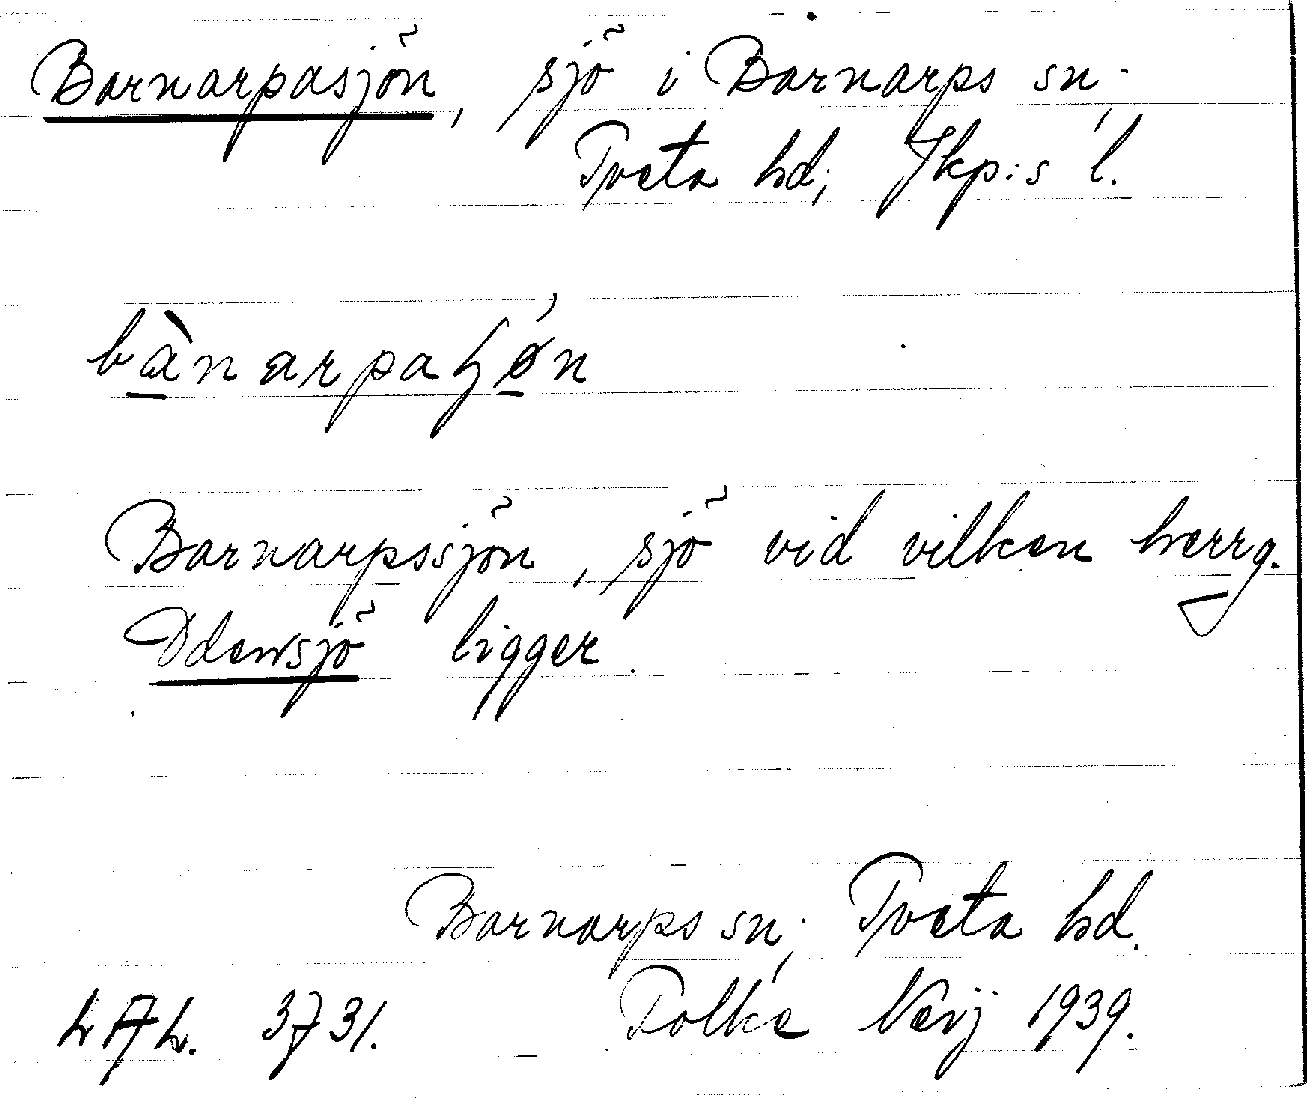 Barnarpasjön, sjö i Barnarps sn;
Tveta hd; Jkp:s l.
bànarpaɧøn
Barnarpssjön, sjö vid vilken herrg.
Odensjö ligger.
Barnarps sn; Tveta hd.
LAL. 3731. Folke Verij 1939.